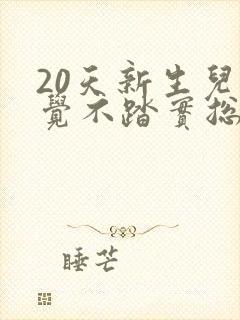 20天新生兒
覺不踏實總
睡芒